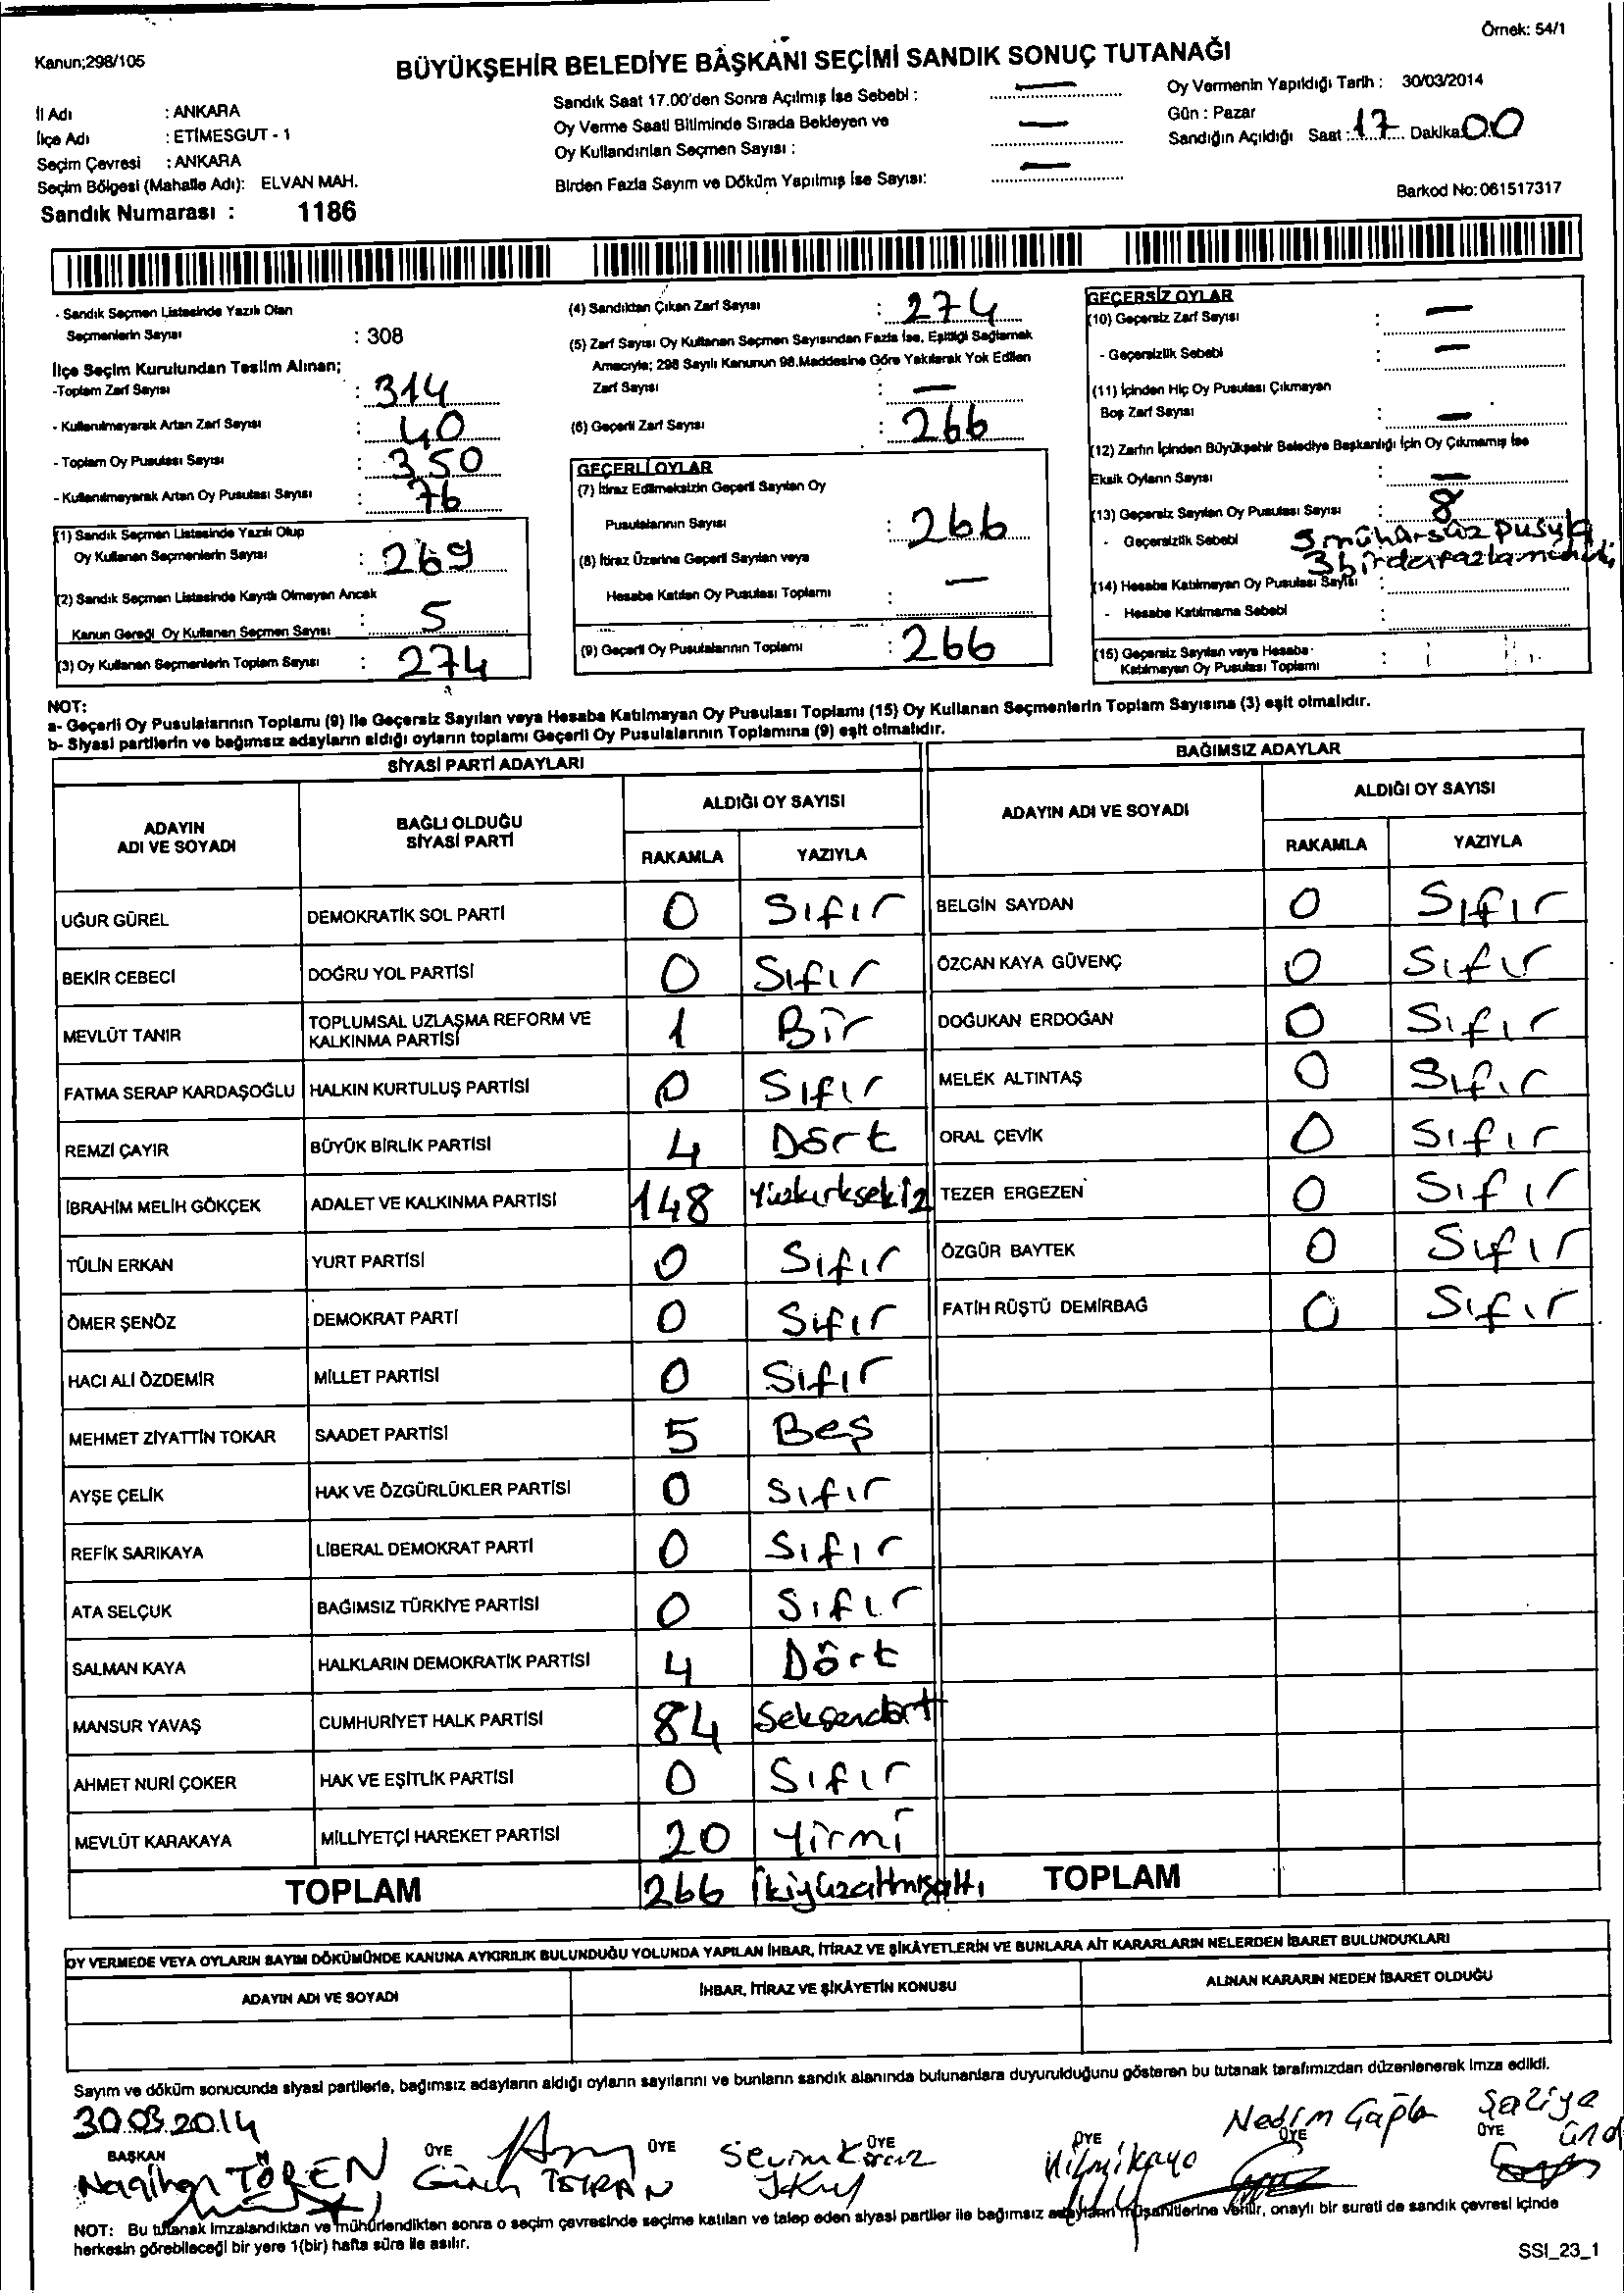 Örnek: 54/1
Kanun;298/105
BÜYÜKŞEHİR BELEDİYE BAŞKANI SEÇİMİ SANDIK SONUÇ TUTANAĞI
İl Adı : ANKARA
İlçe Adı : ETİMESGUT - 1
Seçim Çevresi : ANKARA
Seçim Bölgesi (Mahalle Adı): ELVAN MAH.
Sandık Numarası : 1186
Sandık Saat 17.00'den Sonra Açılmış İse Sebebi : —
Oy Verme Saati Bitiminde Sırada Bekleyen ve —
Oy Kullandırılan Seçmen Sayısı :
Birden Fazla Sayım ve Döküm Yapılmış İse Sayısı: —
Oy Vermenin Yapıldığı Tarih : 30/03/2014
Gün : Pazar
Sandığın Açıldığı Saat : 17 Dakika 00
Barkod No: 061517317
- Sandık Seçmen Listesinde Yazılı Olan
Seçmenlerin Sayısı : 308
İlçe Seçim Kurulundan Teslim Alınan;
-Toplam Zarf Sayısı : 314
- Kullanılmayarak Artan Zarf Sayısı : 40
- Toplam Oy Pusulası Sayısı : 350
- Kullanılmayarak Artan Oy Pusulası Sayısı : 76
(1) Sandık Seçmen Listesinde Yazılı Olup
Oy Kullanan Seçmenlerin Sayısı : 269
(2) Sandık Seçmen Listesinde Kayıtlı Olmayan Ancak
Kanun Gereği Oy Kullanan Seçmen Sayısı : 5
(3) Oy Kullanan Seçmenlerin Toplam Sayısı : 274
(4) Sandıktan Çıkan Zarf Sayısı : 274
(5) Zarf Sayısı Oy Kullanan Seçmen Sayısından Fazla İse, Eşitliği Sağlamak
Amacıyla; 298 Sayılı Kanunun 98.Maddesine Göre Yakılarak Yok Edilen
Zarf Sayısı : —
(6) Geçerli Zarf Sayısı : 266
GEÇERLİ OYLAR
(7) İtiraz Edilmeksizin Geçerli Sayılan Oy
Pusulalarının Sayısı : 266
(8) İtiraz Üzerine Geçerli Sayılan veya
Hesaba Katılan Oy Pusulası Toplamı : —
(9) Geçerli Oy Pusulalarının Toplamı : 266
GEÇERSİZ OYLAR
(10) Geçersiz Zarf Sayısı : —
- Geçersizlik Sebebi : —
(11) İçinden Hiç Oy Pusulası Çıkmayan
Boş Zarf Sayısı : —
(12) Zarfın İçinden Büyükşehir Belediye Başkanlığı İçin Oy Çıkmamış İse
Eksik Oyların Sayısı : —
(13) Geçersiz Sayılan Oy Pusulası Sayısı : 8
- Geçersizlik Sebebi 5 mühürsüz pusula
3 birden fazla
(14) Hesaba Katılmayan Oy Pusulası Sayısı :
- Hesaba Katılmama Sebebi :
(15) Geçersiz Sayılan veya Hesaba
Katılmayan Oy Pusulası Toplamı :
NOT:
a- Geçerli Oy Pusulalarının Toplamı (9) ile Geçersiz Sayılan veya Hesaba Katılmayan Oy Pusulası Toplamı (15) Oy Kullanan Seçmenlerin Toplam Sayısına (3) eşit olmalıdır.
b- Siyasi partilerin ve bağımsız adayların aldığı oyların toplamı Geçerli Oy Pusulalarının Toplamına (9) eşit olmalıdır.
SİYASİ PARTİ ADAYLARI BAĞIMSIZ ADAYLAR
ADAYIN ADI VE SOYADI BAĞLI OLDUĞU SİYASİ PARTİ ALDIĞI OY SAYISI ADAYIN ADI VE SOYADI ALDIĞI OY SAYISI
RAKAMLA YAZIYLA RAKAMLA YAZIYLA
UĞUR GÜREL DEMOKRATİK SOL PARTİ 0 Sıfır BELGİN SAYDAN 0 Sıfır
BEKİR CEBECİ DOĞRU YOL PARTİSİ 0 Sıfır ÖZCAN KAYA GÜVENÇ 0 Sıfır
MEVLÜT TANIR TOPLUMSAL UZLAŞMA REFORM VE KALKINMA PARTİSİ 1 Bir DOĞUKAN ERDOĞAN 0 Sıfır
FATMA SERAP KARDAŞOĞLU HALKIN KURTULUŞ PARTİSİ 0 Sıfır MELEK ALTINTAŞ 0 Sıfır
REMZİ ÇAYIR BÜYÜK BİRLİK PARTİSİ 4 Dört ORAL ÇEVİK 0 Sıfır
İBRAHİM MELİH GÖKÇEK ADALET VE KALKINMA PARTİSİ 148 Yüzkırksekiz TEZER ERGEZEN 0 Sıfır
TÜLİN ERKAN YURT PARTİSİ 0 Sıfır ÖZGÜR BAYTEK 0 Sıfır
ÖMER ŞENÖZ DEMOKRAT PARTİ 0 Sıfır FATİH RÜŞTÜ DEMİRBAĞ 0 Sıfır
HACI ALİ ÖZDEMİR MİLLET PARTİSİ 0 Sıfır
MEHMET ZİYATTİN TOKAR SAADET PARTİSİ 5 Beş
AYŞE ÇELİK HAK VE ÖZGÜRLÜKLER PARTİSİ 0 Sıfır
REFİK SARIKAYA LİBERAL DEMOKRAT PARTİ 0 Sıfır
ATA SELÇUK BAĞIMSIZ TÜRKİYE PARTİSİ 0 Sıfır
SALMAN KAYA HALKLARIN DEMOKRATİK PARTİSİ 4 Dört
MANSUR YAVAŞ CUMHURİYET HALK PARTİSİ 84 Seksendört
AHMET NURİ ÇOKER HAK VE EŞİTLİK PARTİSİ 0 Sıfır
MEVLÜT KARAKAYA MİLLİYETÇİ HAREKET PARTİSİ 20 Yirmi
TOPLAM 266 İkiyüzaltmışaltı TOPLAM
OY VERMEDE VEYA OYLARIN SAYIM DÖKÜMÜNDE KANUNA AYKIRILIK BULUNDUĞU YOLUNDA YAPILAN İHBAR, İTİRAZ VE ŞİKÂYETLERİN VE BUNLARA AİT KARARLARIN NELERDEN İBARET BULUNDUKLARI
ADAYIN ADI VE SOYADI İHBAR, İTİRAZ VE ŞİKÂYETİN KONUSU ALINAN KARARIN NEDEN İBARET OLDUĞU
Sayım ve döküm sonucunda siyasi partilerle, bağımsız adayların aldığı oyların sayılarını ve bunların sandık alanında bulunanlara duyurulduğunu gösteren bu tutanak tarafımızdan düzenlenerek imza edildi.
30.03.2014
BAŞKAN ÜYE ÜYE ÜYE ÜYE ÜYE ÜYE
Nagihan TÖREN
NOT: Bu tutanak imzalandıktan ve mühürlendikten sonra o seçim çevresinde seçime katılan ve talep eden siyasi partiler ile bağımsız adayların müşahitlerine verilir, onaylı bir sureti de sandık çevresi içinde
herkesin görebileceği bir yere 1(bir) hafta süre ile asılır.
SSI_23_1